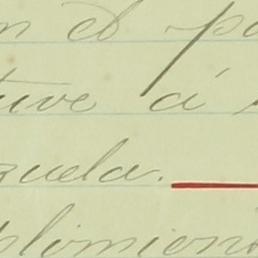 n el pa
tuve á
zuela.
plomien